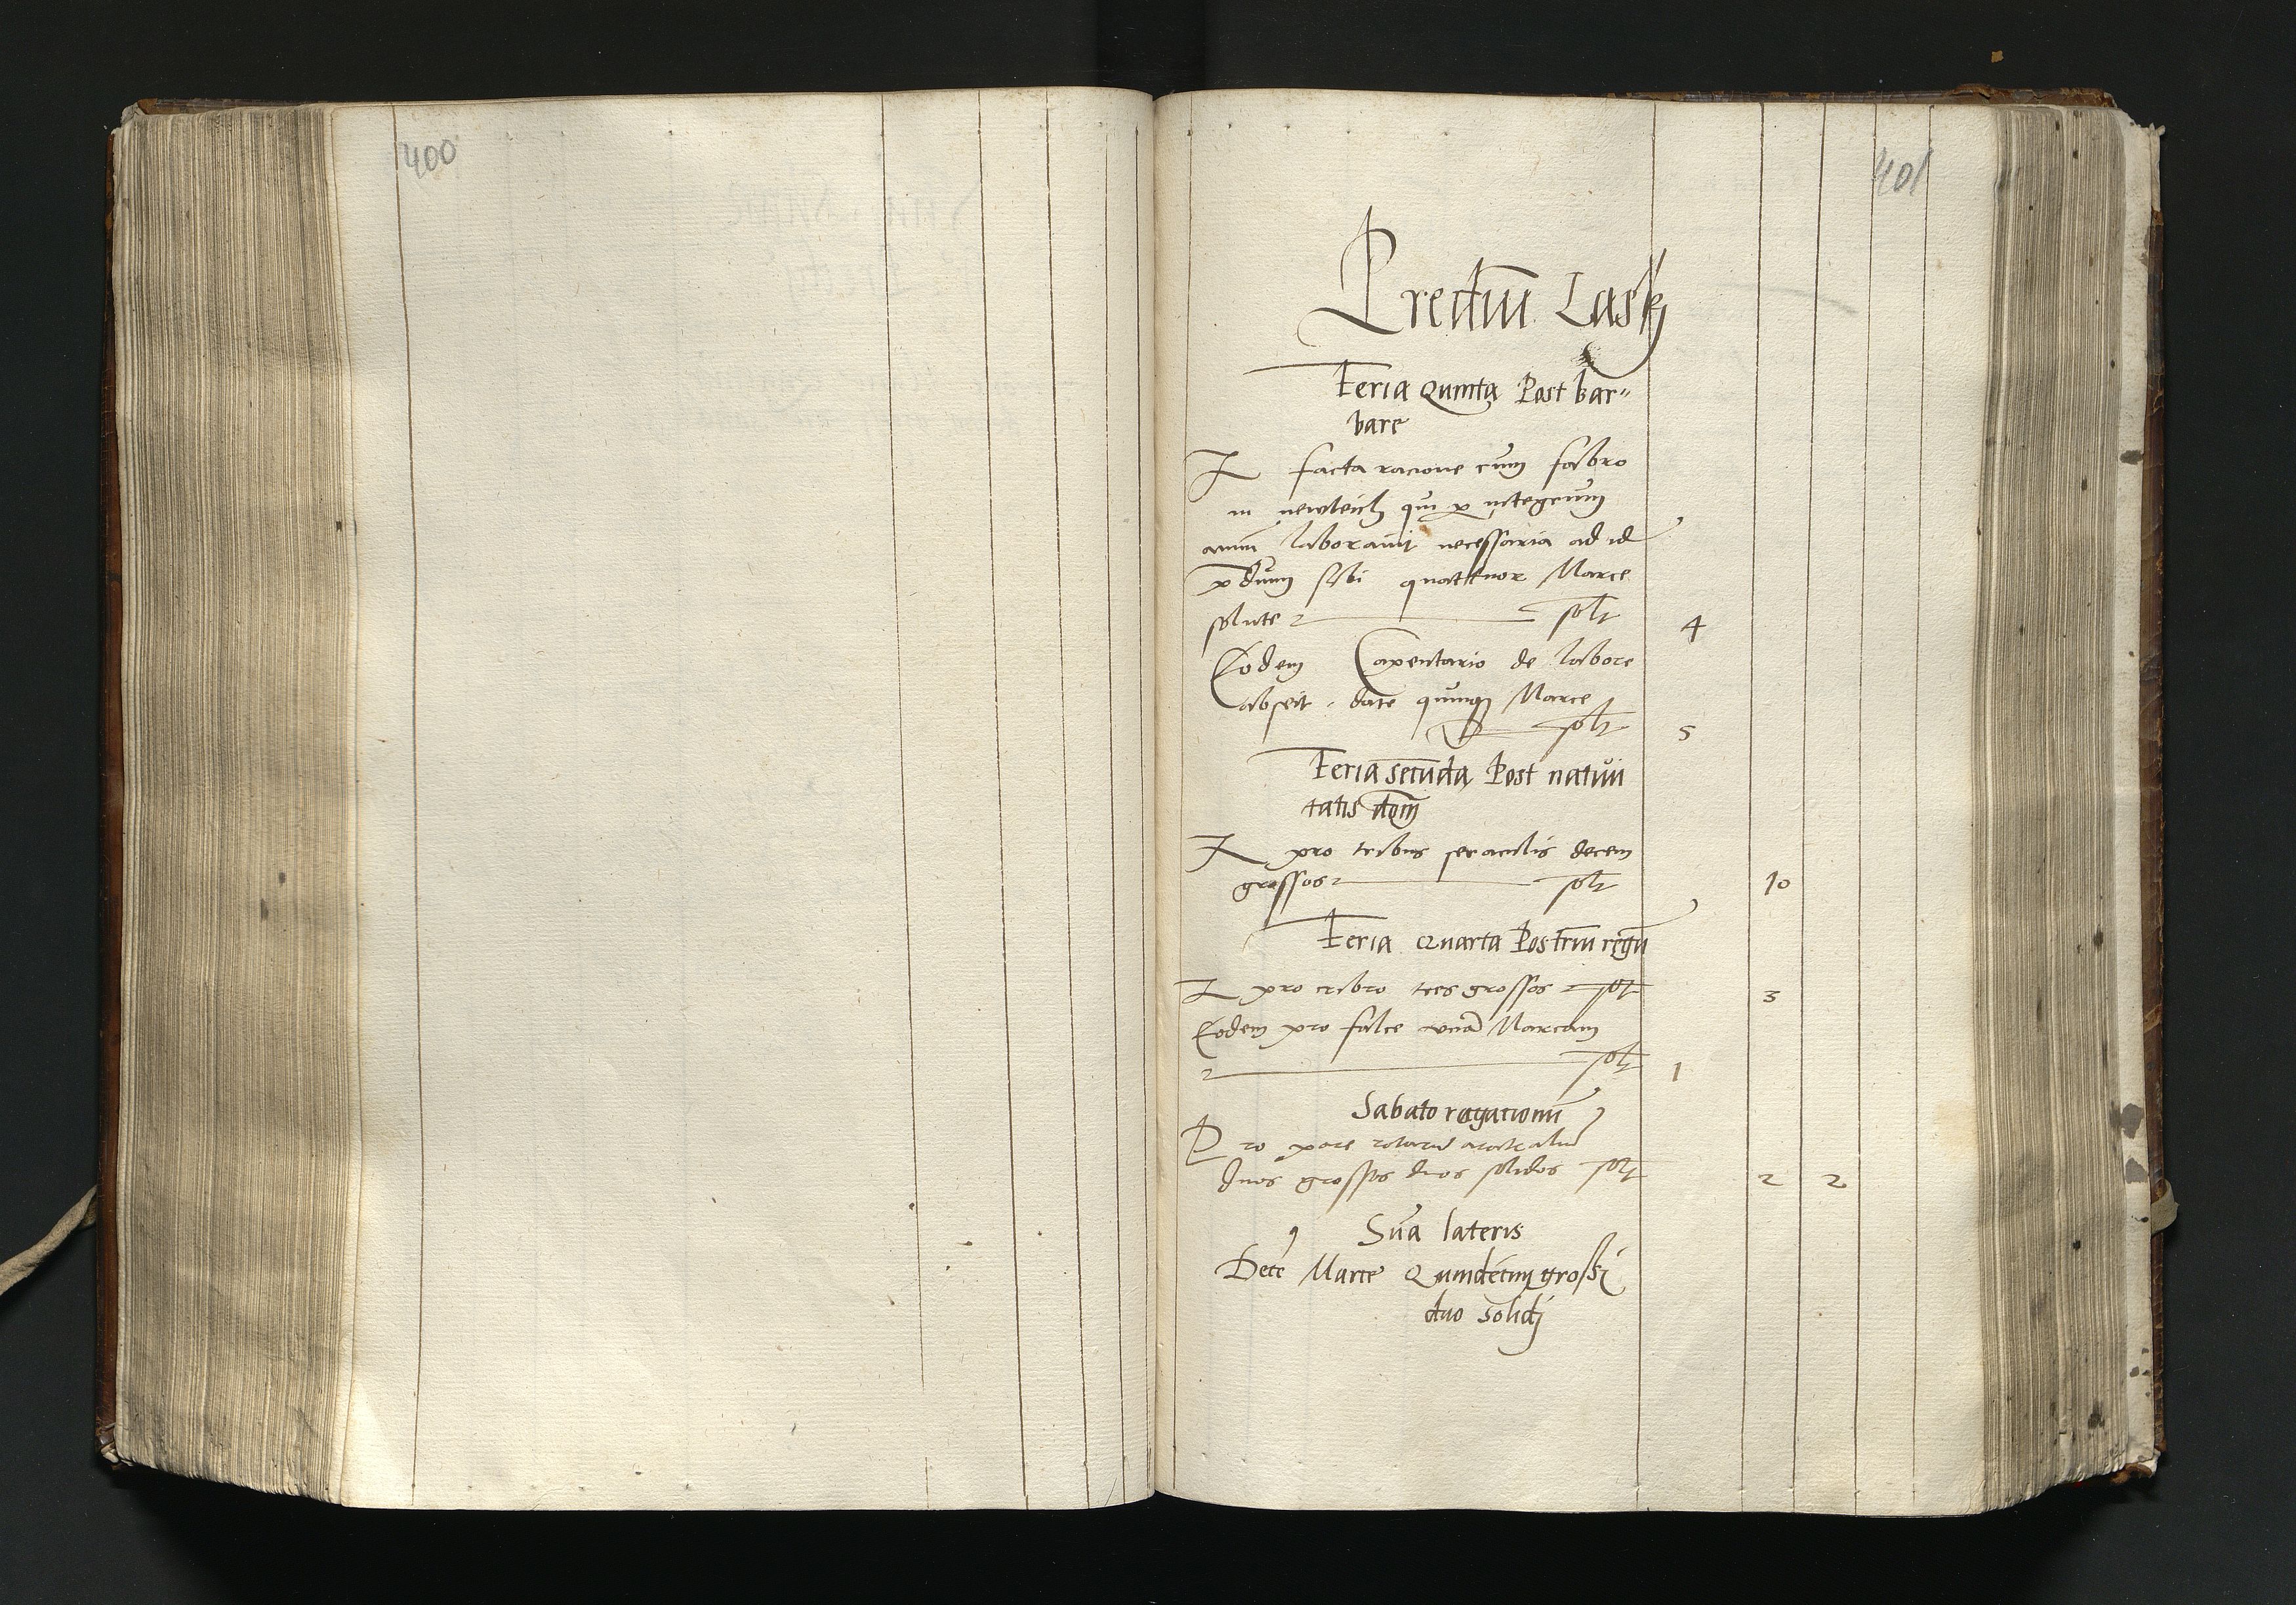 400
401
Prediu Lask
Feria Quinta Post bar-
bare
I facta racione cum fabro
in newteich qui p integrum
annu laboravit necessaria ad id
p dum sibi quattuor Marce
solute solt 4
Eodem Carpentario de labore
date quinq Marce
solt 5
Feria secuda Post nativi
tatis dom
I pro tribus seraculis decem
grossos solt 10
Feria Quarta Post triu regu
I pro cribro tres grossos solt 3
Eodem pro falce una Marcam
solt 1
Sabato rogacionu
Pro pare rotaru aratraliu
duos grossos duos solidos solt 2 2
Sua lateris
Dece Marce Quindecim grossi
duo solidj